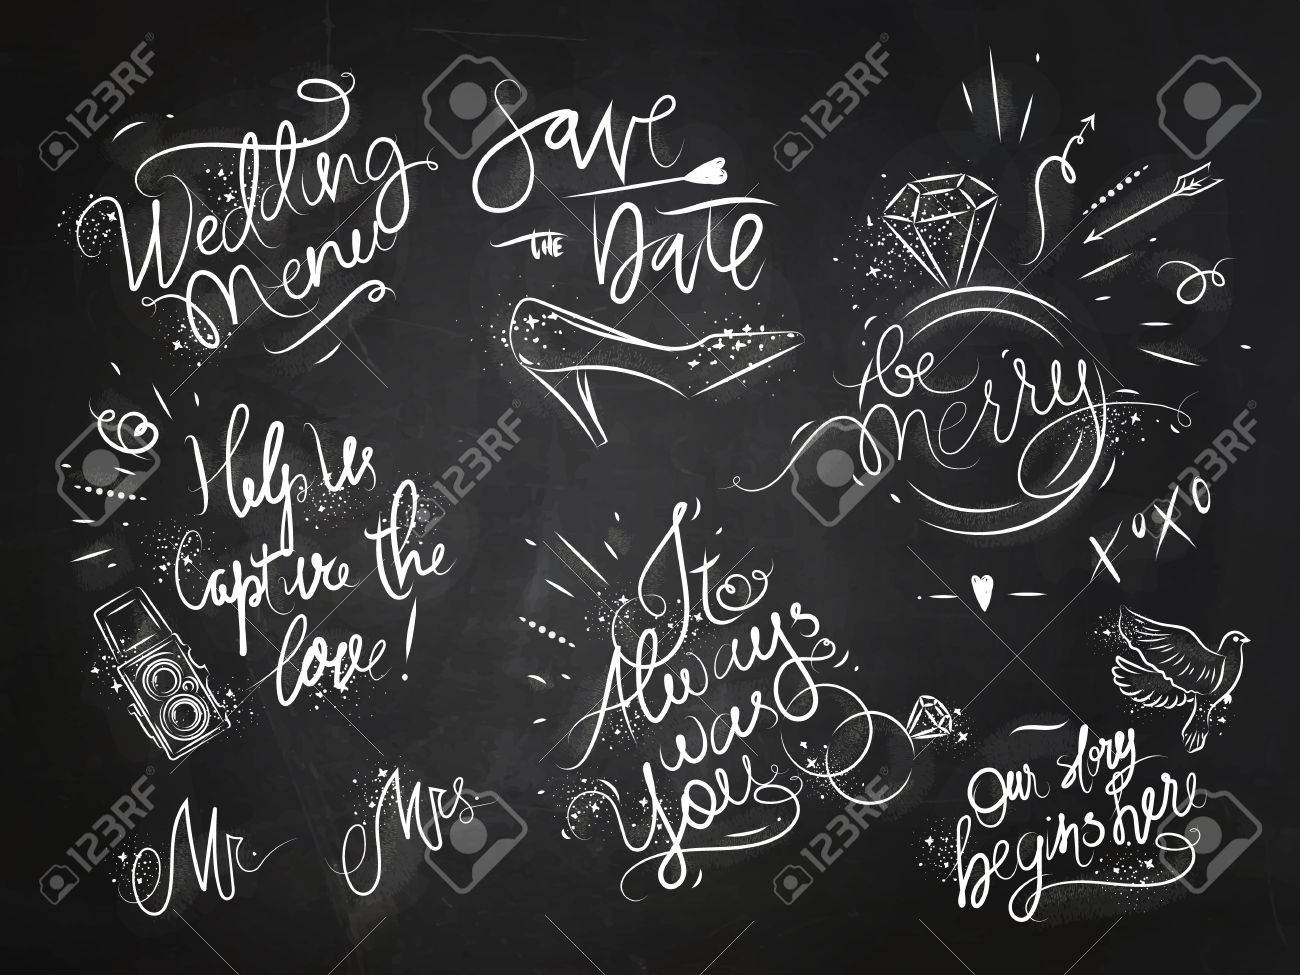 Wedding
Menu
Save
the Date
be
merry
Help us
Capture the
love!
It
Always
was
You
xoxo
Mr.
Mrs.
Our story
begins here
123RF
123RF
123RF
123RF
123RF
123RF